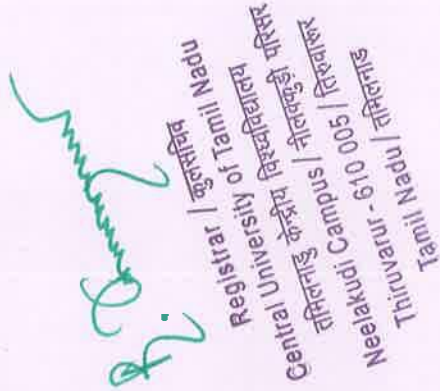 Registrar / कुलसचिव
Central University of Tamil Nadu
तमिलनाडु केन्द्रीय विश्वविद्यालय
Neelakudi Campus / नीलक्कुडी परिसर
Thiruvarur - 610 005 / तिरुवारूर
Tamil Nadu / तमिलनाडु